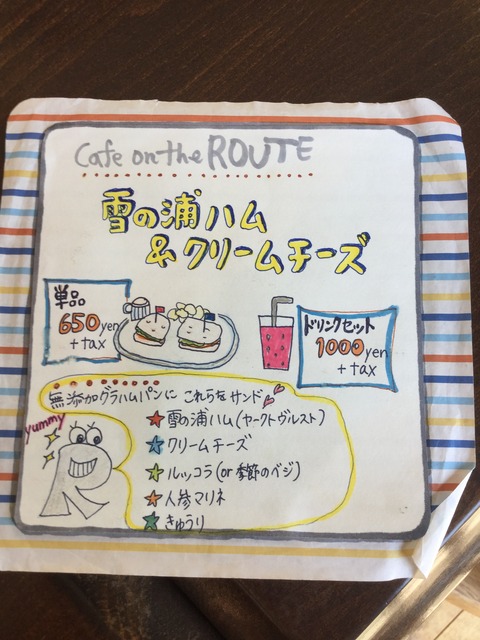 Cafe on the ROUTE
雪の浦ハム
&クリームチーズ
単品
650yen
+tax
ドリンクセット
1000yen
+tax
無添加グラハムパンに これらをサンド
yummy
★雪の浦ハム(ヤークトヴルスト)
★クリームチーズ
★ルッコラ(or 季節のベジ)
★人参マリネ
★きゅうり
R